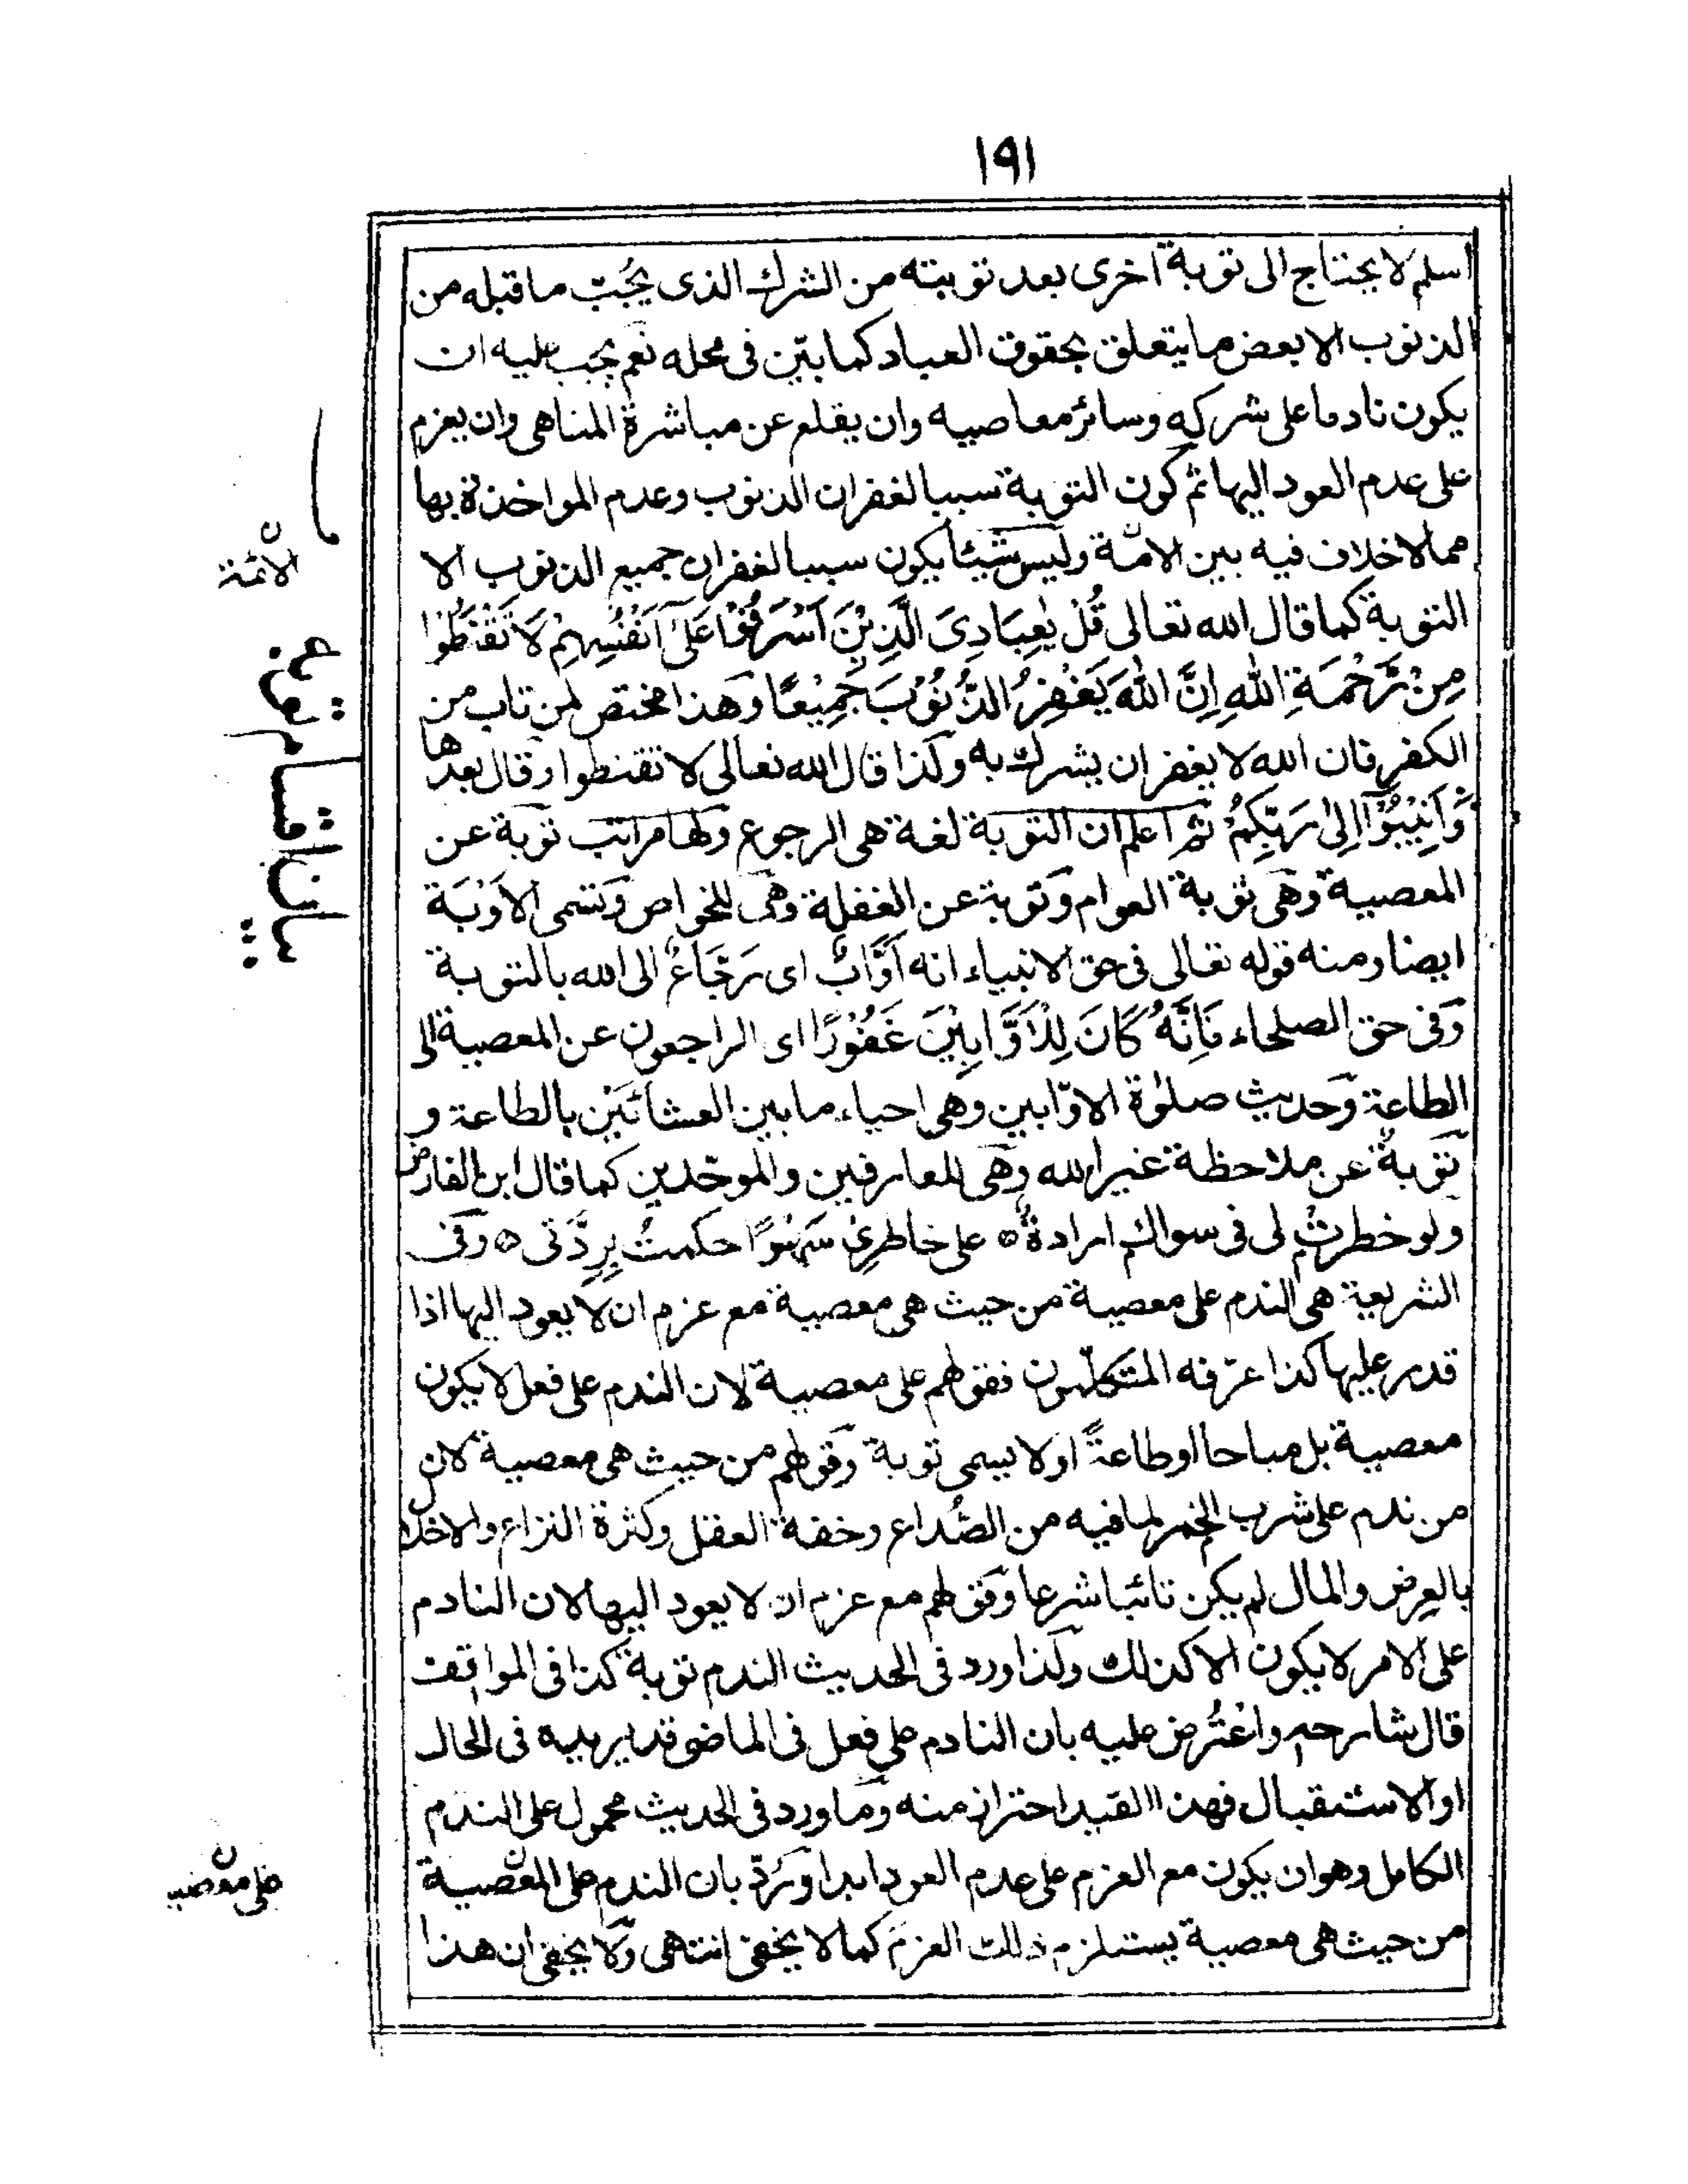 ١٩١
اسلم لا يحتاج الى توبة اخرى بعد توبته من الشرك الذى يجُبّ ما قبله من
الذنوب الا بعض ما يتعلق بحقوق العباد كما بيّن فى محله نعم يجب عليه ان
يكون نادما على شركه وسائر معاصيه وان يقلع عن مباشرة المناهى وان يعزم
على عدم العود اليها ثم كون التوبة سببا لغفران الذنوب وعدم المواخذة بها
مما لا خلاف فيه بين الامّة وليس شيئا يكون سببا لغفران جميع الذنوب الا
التوبة كما قال الله تعالى قُلْ يٰعِبَادِىَ الَّذِيْنَ اَسْرَفُوْا عَلٰى اَنْفُسِهِمْ لَا تَقْنَطُوْا
مِنْ رَّحْمَةِ اللهِ اِنَّ اللهَ يَغْفِرُ الذُّنُوْبَ جَمِيْعًا وهذا مختص لمن تاب من
الكفر فان الله لا يغفر ان يشرك به وكذا قال الله تعالى لا تقنطوا وقال بعدها
وَّاَنِيْبُوْۤا اِلٰى رَبِّكُمْ ثم اعلم ان التوبة لغة هى الرجوع ولها مراتب توبة عن
المعصية وهى توبة العوام وتوبة عن الغفلة وهى للخواص وتسمى الاَوْبَة
ايضا ومنه قوله تعالى فى حق الانبياء انه اَوَّابٌ اى رَجَّاعٌ الى الله بالتوبة
وفى حق الصلحاء فَاِنَّهُ كَانَ لِلْاَوَّابِيْنَ غَفُوْرًا اى الراجعون عن المعصية الى
الطاعة وحديث صلوٰة الاوّابين وهى احياء ما بين العشائَيْن بالطاعة و
توبةٌ عن ملاحظة غير الله وهى للعارفين والموحّدين كما قال ابن الفارض
ولو خطرتْ لى فى سواك ارادةٌ ۞ على خاطرِىْ سَهْوًا حكمتُ بِرِدَّتى ۞ وفى
الشريعة هى الندم على معصية من حيث هى معصية مع عزم ان لا يعود اليها اذا
قدر عليها كذا عرّفه المتكلّمون فقولهم على معصية لان الندم على فعل لا يكون
معصية بل مباحا او طاعةً او لا يسمى توبة وقولهم من حيث هى معصية لان
من ندم على شرب الخمر لما فيه من الصُداع وخفة العقل وكثرة النزاع والاخلال
بالعِرض والمال لم يكن تائبا شرعا وقولهم مع عزم ان لا يعود اليها لان النادم
على الامر لا يكون الا كذلك ولذا ورد فى الحديث الندم توبة كذا فى المواقف
قال شارحه واعْتُرض عليه بان النادم على فعل فى الماضى قد يريده فى الحال
او الاستقبال فهذا القيد احتراز منه وما ورد فى الحديث محمول على الندم
الكامل وهو ان يكون مع العزم على عدم العود ابدا ورُدّ بان الندم على المعصية
من حيث هى معصية يستلزم ذلك العزم كما لا يخفى انتهى ولا يخفى ان هذا
الائمة ن
بيان اقسام توبه
على معصية ن